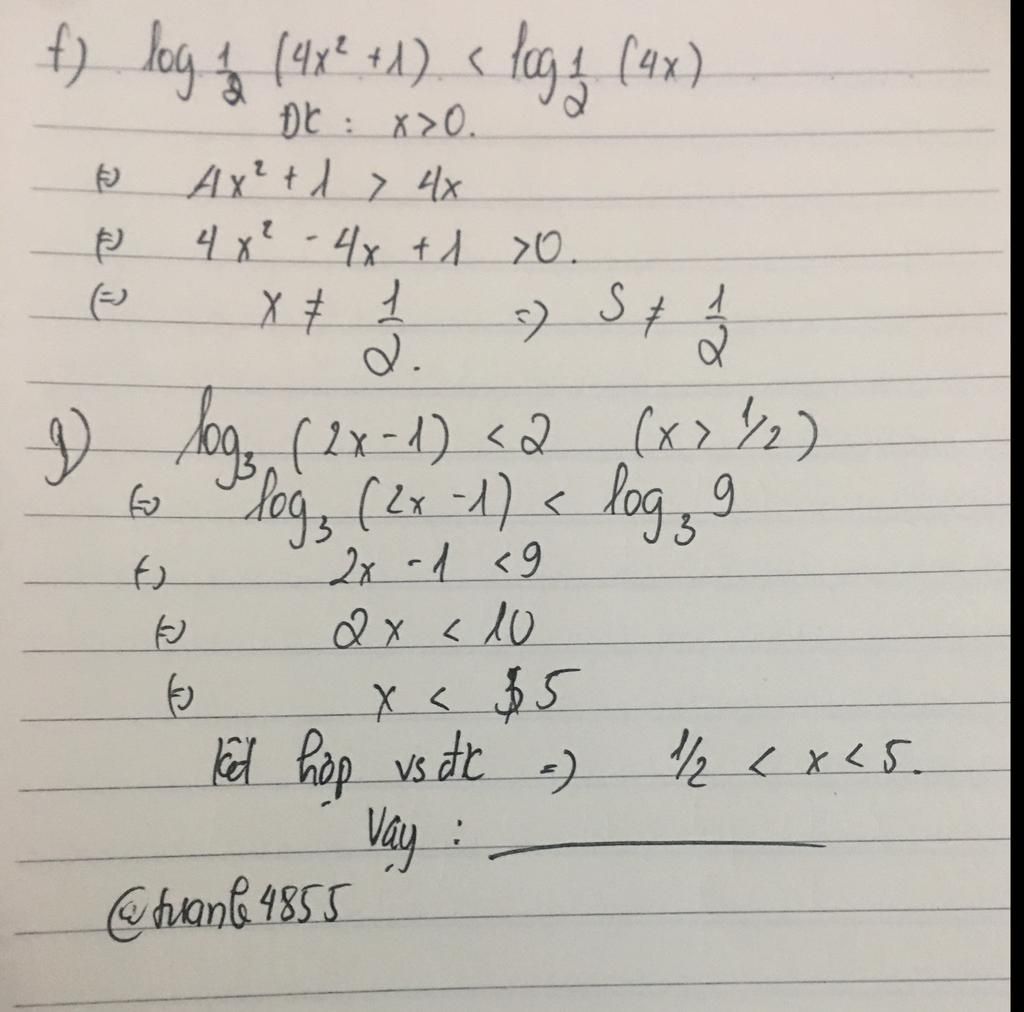 f) log_{1/2} (4x² + 1) < log_{1/2} (4x)
ĐK : x > 0.
(=) 4x² + 1 > 4x
(=) 4x² - 4x + 1 > 0.
(=) x ≠ 1/2. =) S ≠ 1/2
g) log₃ (2x - 1) < 2 (x > 1/2)
(=) log₃ (2x - 1) < log₃ 9
(=) 2x - 1 < 9
(=) 2x < 10
(=) x < 5
kết hợp vs đk =) 1/2 < x < 5.
Vậy :
@tuanle4855